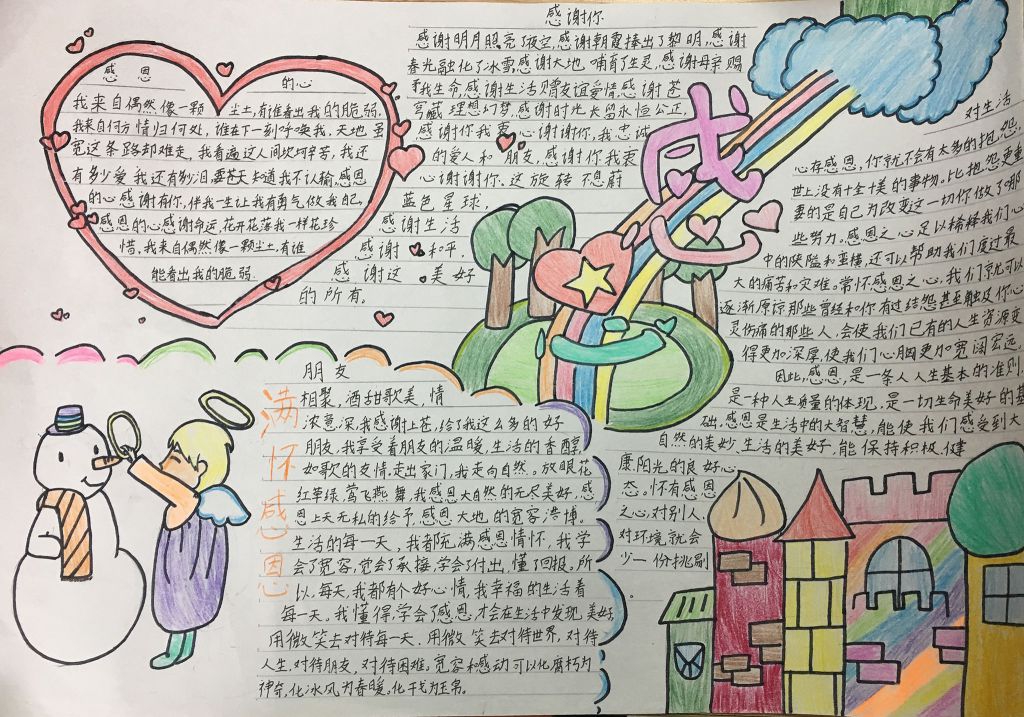 感恩的心
我来自偶然像一颗尘土,有谁看出我的脆弱.
我来自何方情归何处,谁在下一刻呼唤我,天地虽
宽这条路却难走,我看遍这人间坎坷辛苦,我还
有多少爱我还有多少泪.要苍天知道我不认输,感恩
的心感谢有你,伴我一生让我有勇气做我自己.
感恩的心感谢命运,花开花落我一样花珍
惜,我来自偶然像一颗尘土有谁
能看出我的脆弱.
感谢你
感谢明月照亮了夜空,感谢朝霞捧出了黎明,感谢
春光融化了冰雪,感谢大地哺育了生灵,感谢母亲赐
予我生命,感谢生活赠友谊爱情,感谢苍
穹藏理想幻梦,感谢时光长留永恒公正,
感谢你我衷心谢谢你,我忠诚
的爱人和朋友,感谢你我衷
心谢谢你.这旋转不息蔚
蓝色星球,
感谢生活
感谢和平.
感谢这美好
的所有。
感恩
对生活
心存感恩,你就不会有太多的抱怨,
世上没有十全十美的事物。比抱怨更重
要的是自己为改变这一切你做了哪
些努力。感恩之心足以稀释我们心
中的狭隘和蛮横,还可以帮助我们度过最
大的痛苦和灾难。常怀感恩之心,我们就可以
逐渐原谅那些曾经和你有过结怨甚至触及你心
灵伤痛的那些人,会使我们已有的人生资源变
得更加深厚,使我们心胸更加宽阔宏远.
因此,感恩,是一条人人生基本的准则,
是一种人生质量的体现,是一切生命美好的基
础,感恩是生活中的大智慧,能使我们感受到大
自然的美妙、生活的美好,能保持积极、健
康.阳光的良好心
态。怀有感恩
之心对别人.
对环境就会
少一份挑剔
。
满怀感恩心
朋友
相聚,酒甜歌美,情
浓意深,我感谢上苍,给了我这么多的好
朋友,我享受着朋友的温暖,生活的香醇,
如歌的友情,走出家门,我走向自然。放眼花
红草绿,莺飞燕舞,我感恩大自然的无尽美好,感
恩上天无私的给予,感恩大地的宽容浩博。
生活的每一天,我都充满感恩情怀,我学
会了宽容,学会了承接,学会了付出,懂了回报。所
以,每天,我都有个好心情,我幸福的生活着
每一天。我懂得,学会了感恩,才会在生活中发现美好,
用微笑去对待每一天,用微笑去对待世界,对待
人生,对待朋友,对待困难。宽容和感动可以化腐朽为
神奇,化冰风为春暖,化干戈为玉帛。